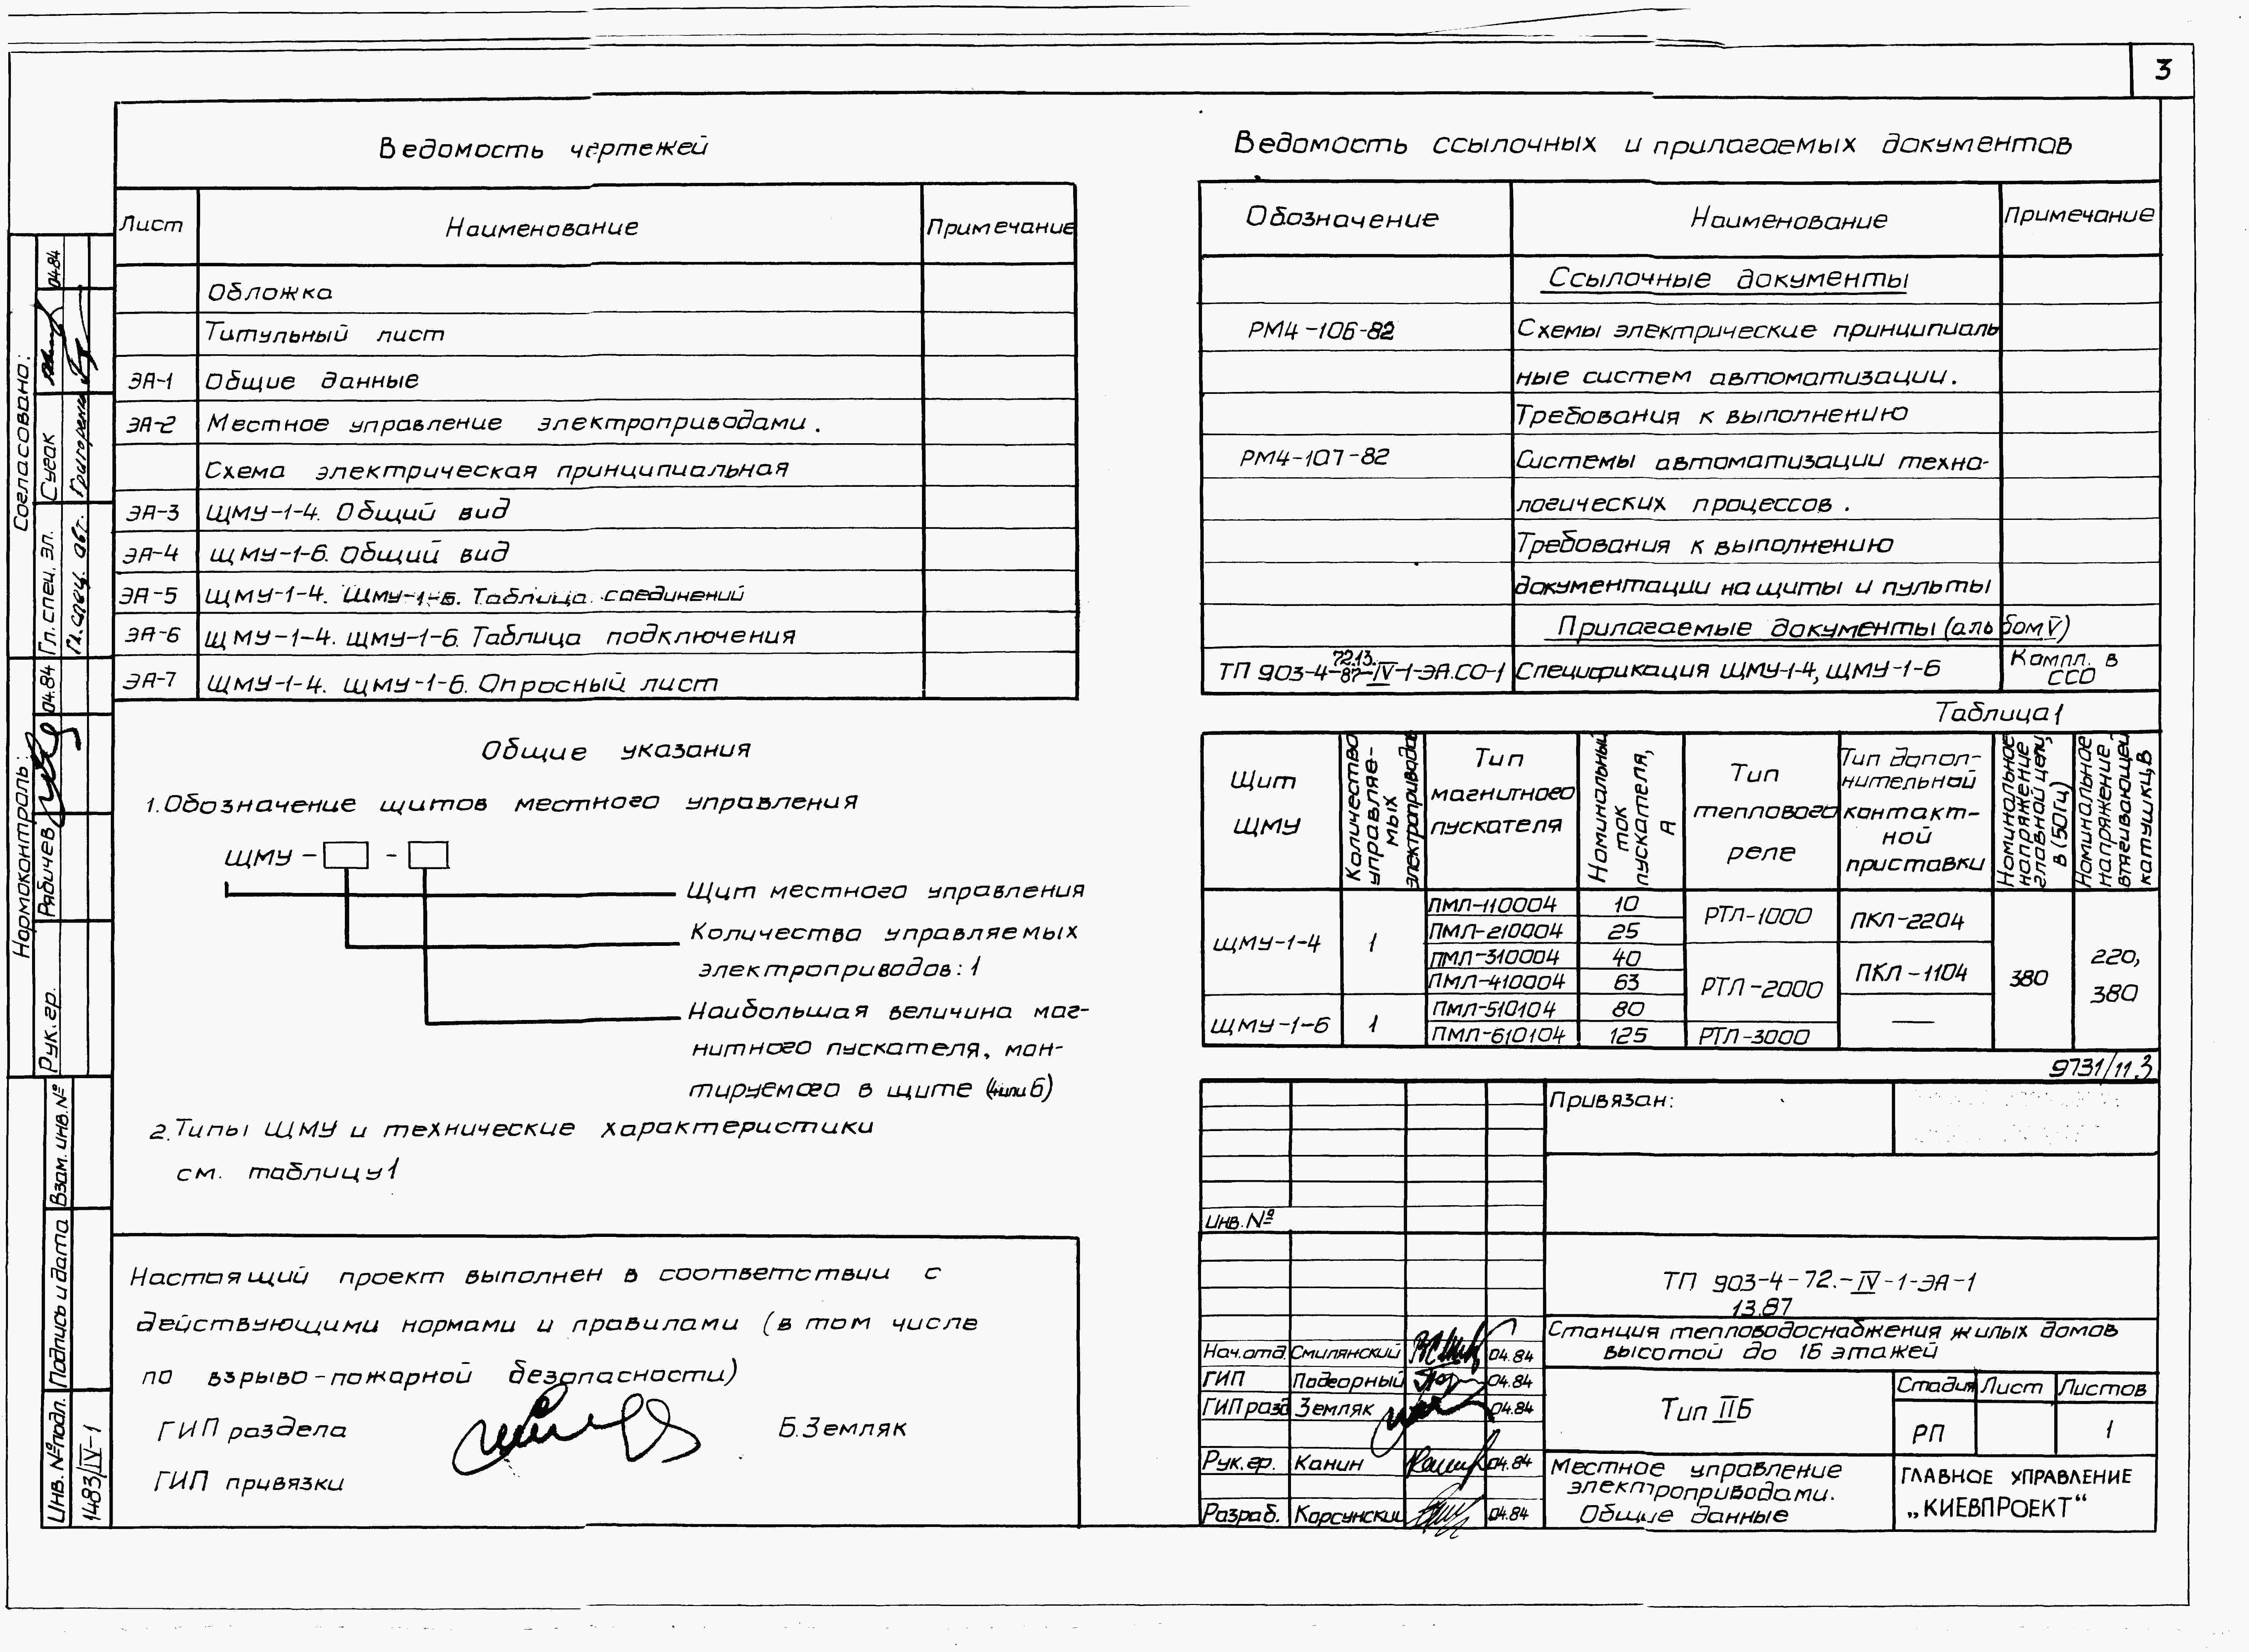 3
Ведомость чертежей
Лист Наименование Примечание
Обложка
Титульный лист
ЭА-1 Общие данные
ЭА-2 Местное управление электроприводами.
Схема электрическая принципиальная
ЭА-3 ЩМУ-1-4. Общий вид
ЭА-4 ЩМУ-1-6. Общий вид
ЭА-5 ЩМУ-1-4. ЩМУ-1-6. Таблица соединений
ЭА-6 ЩМУ-1-4. ЩМУ-1-6. Таблица подключения
ЭА-7 ЩМУ-1-4. ЩМУ-1-6. Опросный лист
Общие указания
1. Обозначение щитов местного управления
ЩМУ - -
Щит местного управления
Количество управляемых
электроприводов: 1
Наибольшая величина маг-
нитного пускателя, мон-
тируемого в щите (4 или 6)
2. Типы ЩМУ и технические характеристики
см. таблицу 1
Настоящий проект выполнен в соответствии с
действующими нормами и правилами (в том числе
по взрыво-пожарной безопасности)
ГИП раздела Б. Земляк
ГИП привязки
Ведомость ссылочных и прилагаемых документов
Обозначение Наименование Примечание
Ссылочные документы
РМ4-106-82 Схемы электрические принципиаль
ные систем автоматизации.
Требования к выполнению
РМ4-107-82 Системы автоматизации техно-
логических процессов.
Требования к выполнению
документации на щиты и пульты
Прилагаемые документы (альбом V)
72.13.
ТП 903-4-87-IV-1-ЭА.СО-1 Спецификация ЩМУ-1-4, ЩМУ-1-6 Компл. в
ССО
Таблица 1
Щит
ЩМУ
Количество
управляе-
мых
электроприводов
Тип
магнитного
пускателя
Номинальный
ток
пускателя,
А
Тип
теплового
реле
Тип допол-
нительной
контакт-
ной
приставки
Номинальное
напряжение
главной цепи,
в (50Гц)
Номинальное
напряжение
втягивающей
катушки, В
ЩМУ-1-4 1 ПМЛ-110004 10 РТЛ-1000 ПКЛ-2204 380 220,
380
ПМЛ-210004 25
ПМЛ-310004 40 РТЛ-2000 ПКЛ-1104
ПМЛ-410004 63
ЩМУ-1-6 1 ПМЛ-510104 80 —
ПМЛ-610104 125 РТЛ-3000
9731/11 3
Привязан:
Инв. №
ТП 903-4-72.-IV-1-ЭА-1
13.87
Станция тепловодоснабжения жилых домов
высотой до 16 этажей
Нач.отд. Смилянский 04.84
ГИП Подгорный 04.84
ГИП разд Земляк 04.84
Рук. гр. Канин 04.84
Разраб. Корсунский 04.84
Тип IIБ
Стадия Лист Листов
РП 1
Местное управление
электроприводами.
Общие данные
ГЛАВНОЕ УПРАВЛЕНИЕ
„КИЕВПРОЕКТ“
Согласовано:
Гл. спец. эл. Сугак 04.84
Гл. спец. авт. Григоренко
Нормоконтроль:
Рук. гр. Рябичев 04.84
Взам. инв. №
Подпись и дата
Инв. № подл.
1483/IV-1